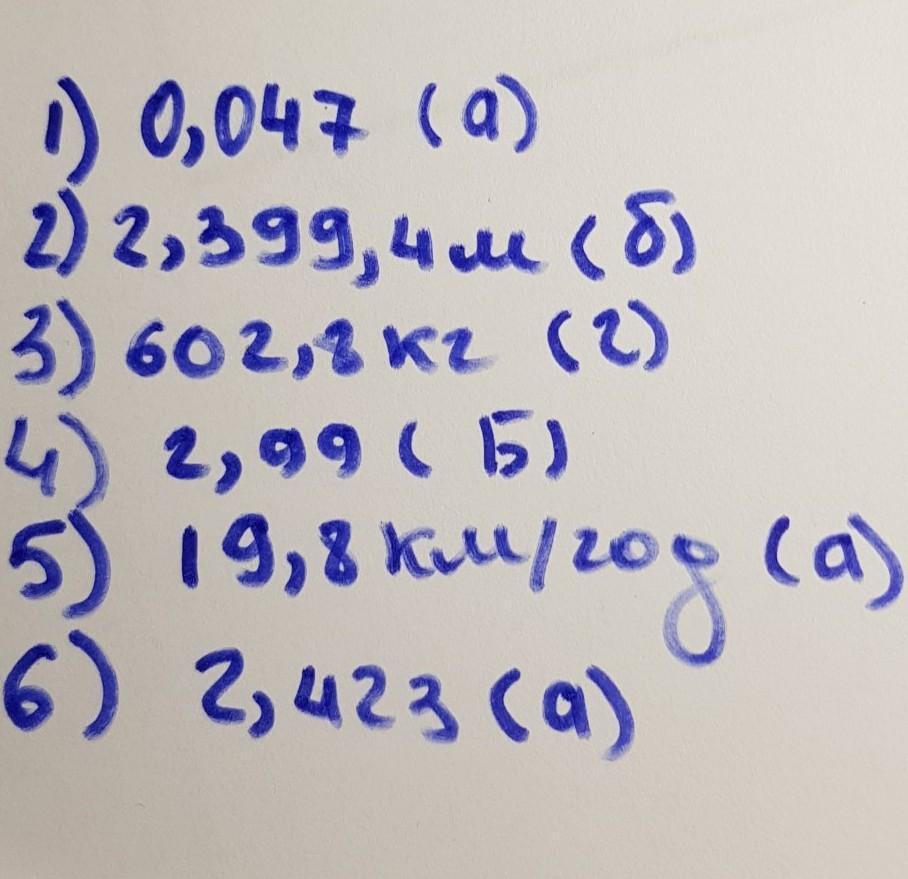 1) 0,047 (а)
2) 2,399,4м (б)
3) 602,8 кг (г)
4) 2,99 (Б)
5) 19,8 км/год (а)
6) 2,423 (а)